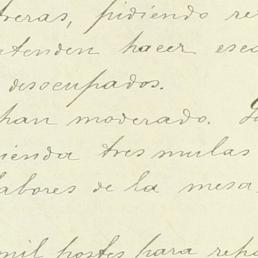 treras, pidiendo re
etenden hacer esca
desocupados.
han moderado.
tres mulas
labores de la mesa
mil postes para repa